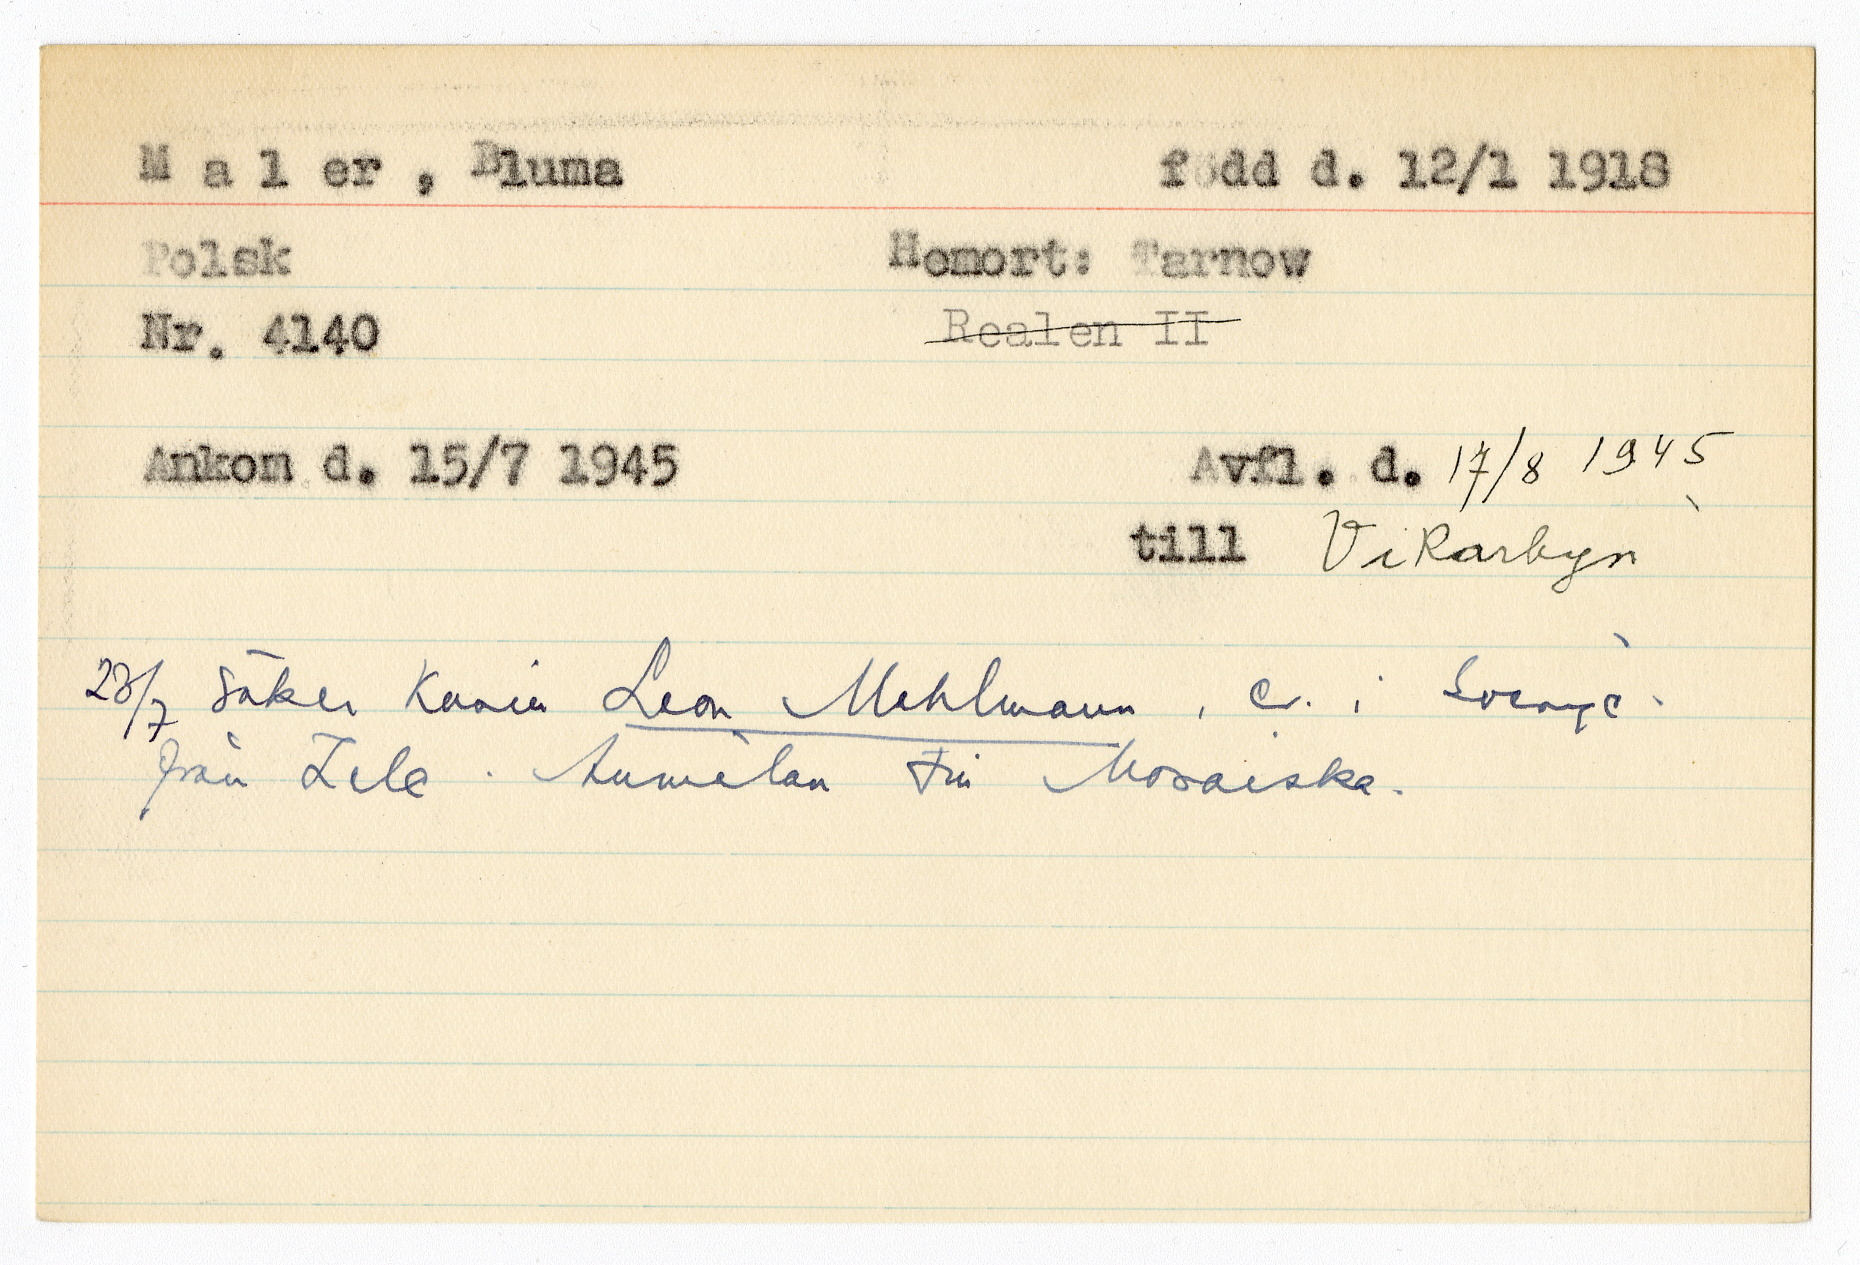 Maler, Bluma född d. 12/1 1918
Polsk Hemort: Tarnow
Nr. 4140 Realen II
Ankom d. 15/7 1945 Avfl. d. 17/8 1945
till Vikarbyn
28/7 Söker Kusin Leon Mehlmann, ev. i Sverige.
från Zele. Anmälan till Mosaiska.